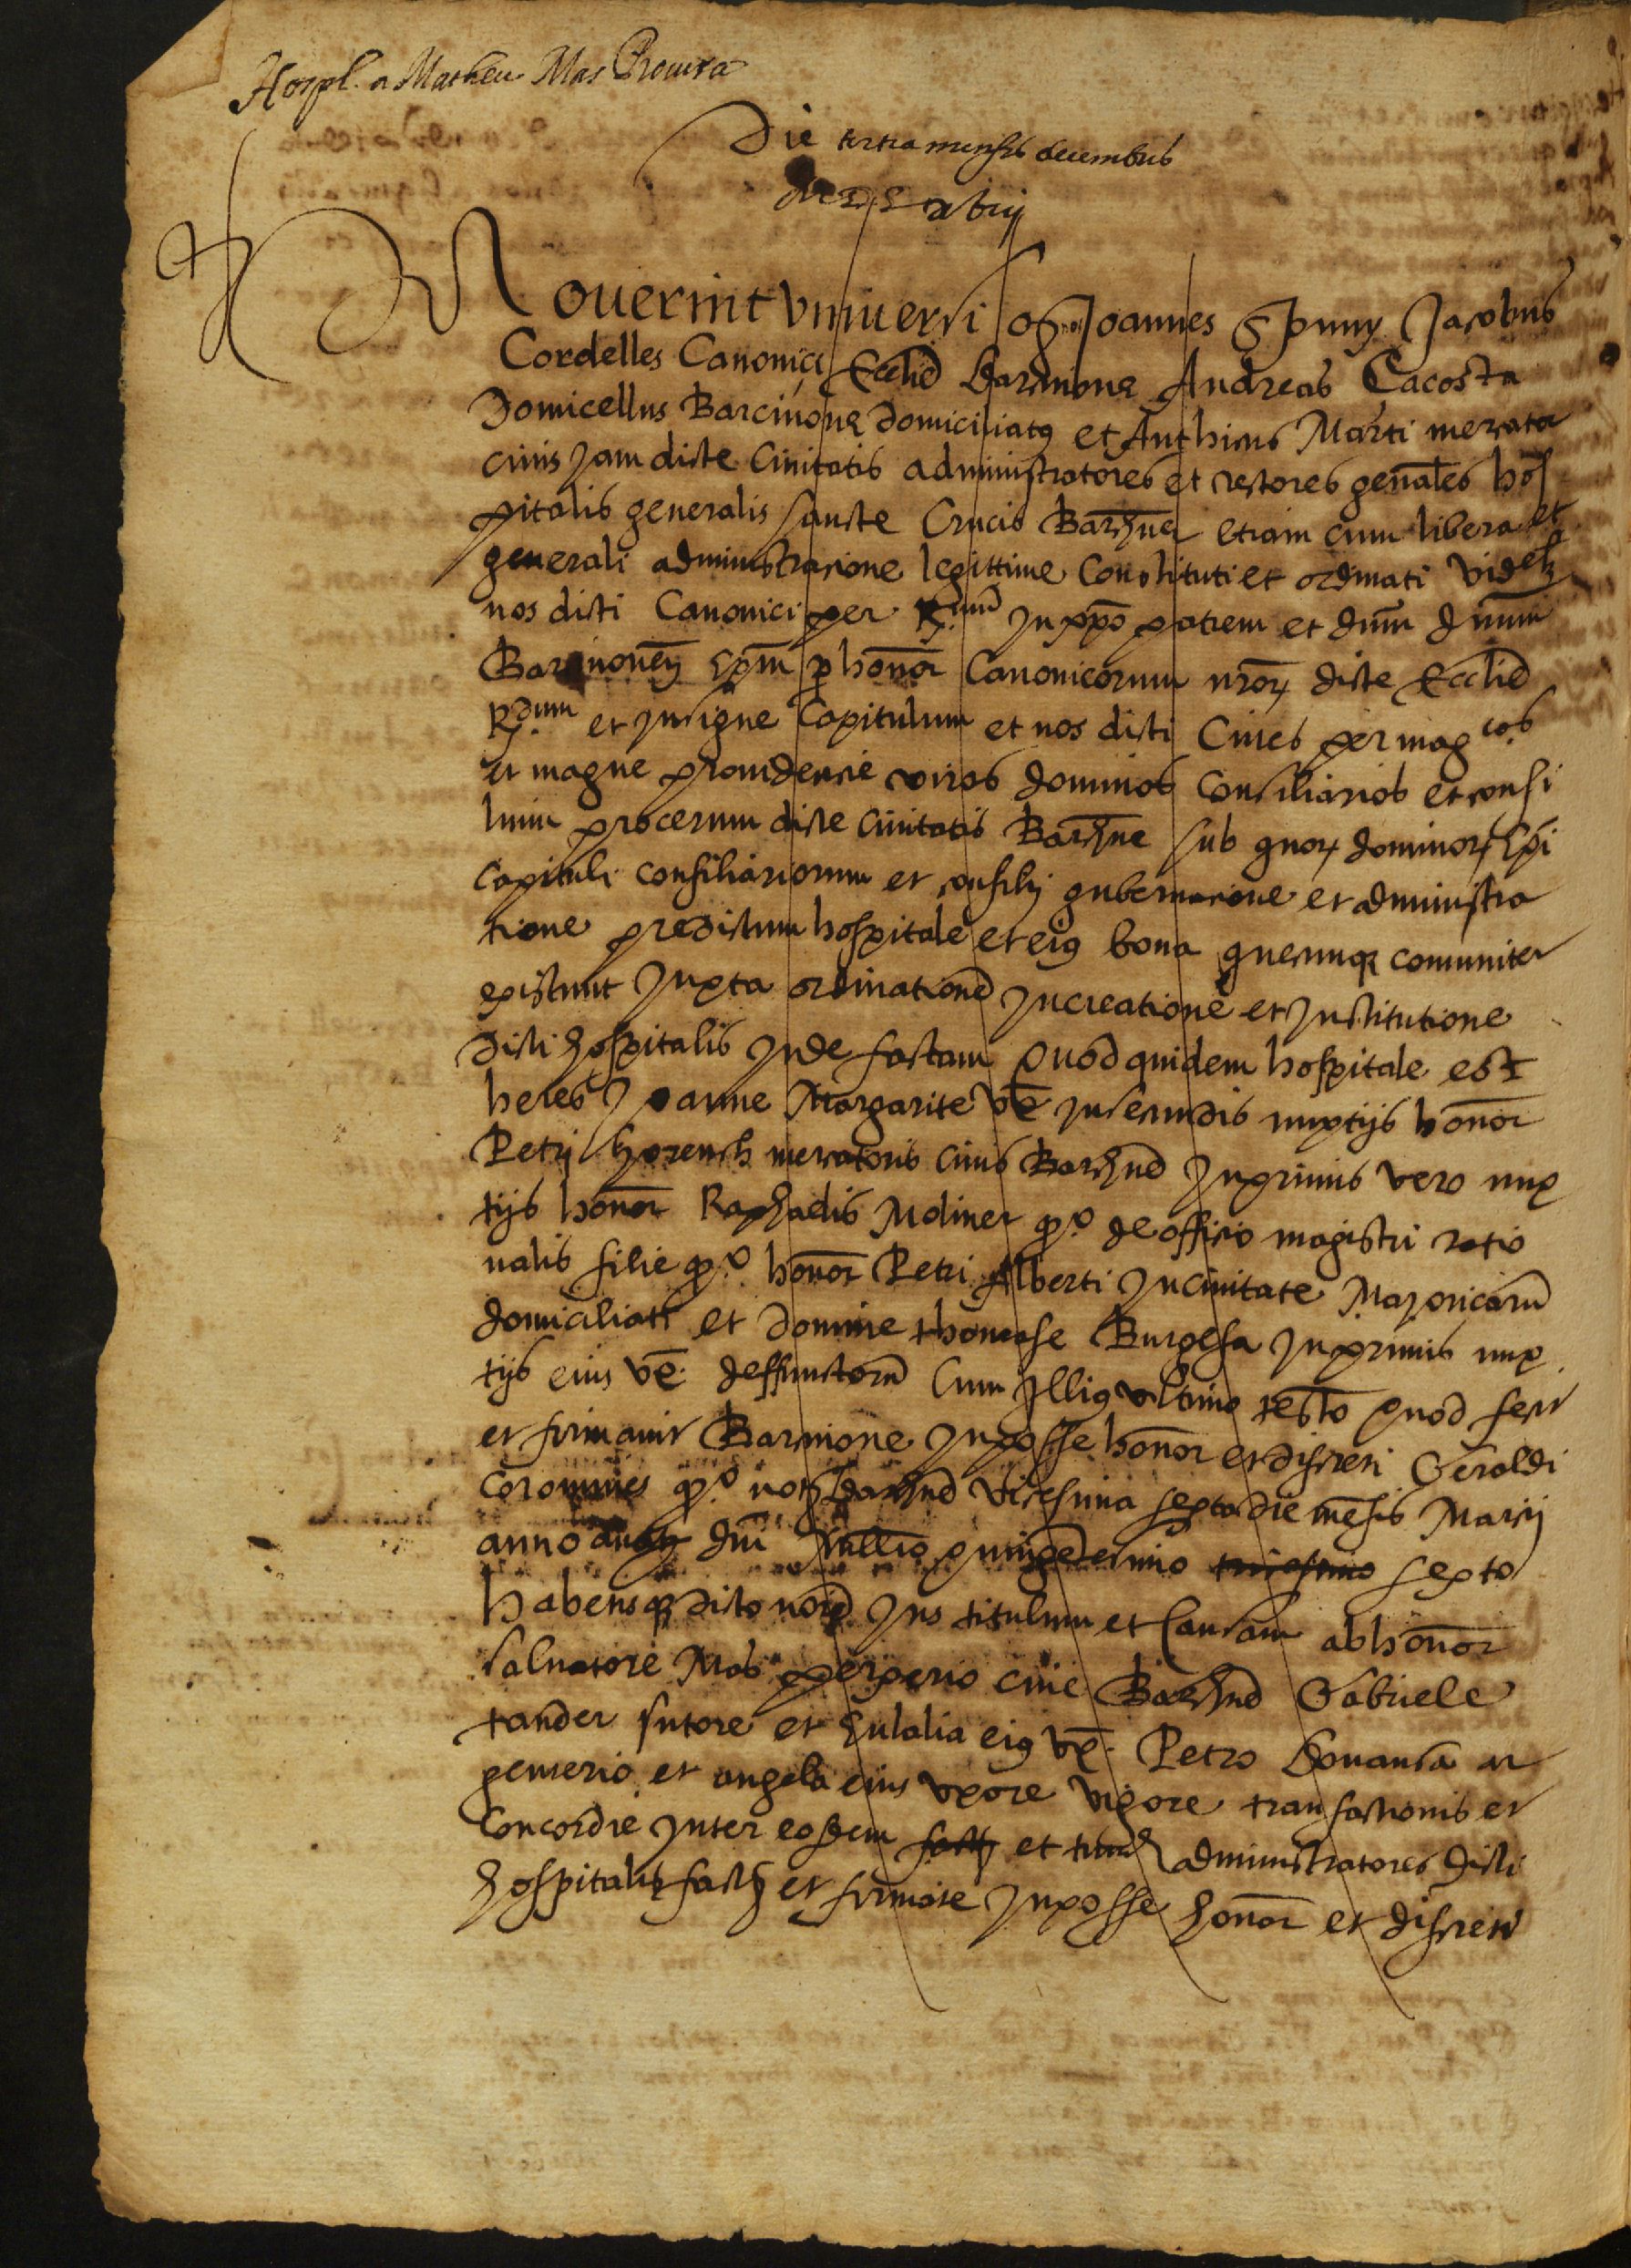 Hospl. a Matheu Mas Rovira
Die tertia mensis decembris
MDLxviij
Noverint universi q nos Joannes Spuny Jacobus
Cordelles Canonici Ecclie Barcinone Andreas Çacosta
Domicellus Barcinone domiciliatus et Anthicus Marti mercator
civis jam dicte Civitatis administratores et rectores genales hos
pitalis generalis sancte Crucis Barchne etiam cum libera et
generali administracione legittime Constituti et ordinati videlz
nos dicti Canonici per R.mum in xpo patrem et dnm dnum
Barcinonen epm per honor Canonicorum nror dicte Ecclie
R.dum et insigne Capitulum et nos dicti Cives per mag.cos
et magne providencie viros dominos Consiliarios et consi
lium procerum dicte civitatis Barchne sub quor dominor Epi
Capituli consiliariorum et consilij gubernacione et administra
tione predictum hospitale et eius bona quecunq comuniter
existunt juxta ordinatione in creatione et institutione
dicti hospitalis inde factam Quod quidem hospitale est
heres Joanne Margarite ux in secundis nuptijs honor
Petri Llorench mercatoris civis Barchne in primis vero nup
tijs honor Raphaelis Moliner q.o de officio magistri ratio
nalis filie q.o honor Petri Alberti in civitate Majoricaru
domiciliati et domine thomase Burgesa in primis nup
tijs eius ux. deffunctoru Cum illius ultimo testo quod fecit
et firmavit Barcinone in posse honor et discreti Geraldi
Coromines q.o not Barchne vicesima sexta die mensis Marcij
anno a nat dni Millio quingentesimo tricesimo sexto
habensq dicto noie jus titulum et Causam ab honor
Salvatore Mas perperio cive Barchne Gabriele
tander sutore et Eulalia eius ux. Petro Bonansa ar
genterio et angela eius uxore vigore transactionis et
Concordie inter eosdem factz et tunch administratores dicti
hospitalis facte et firmate in posse honor et discreti